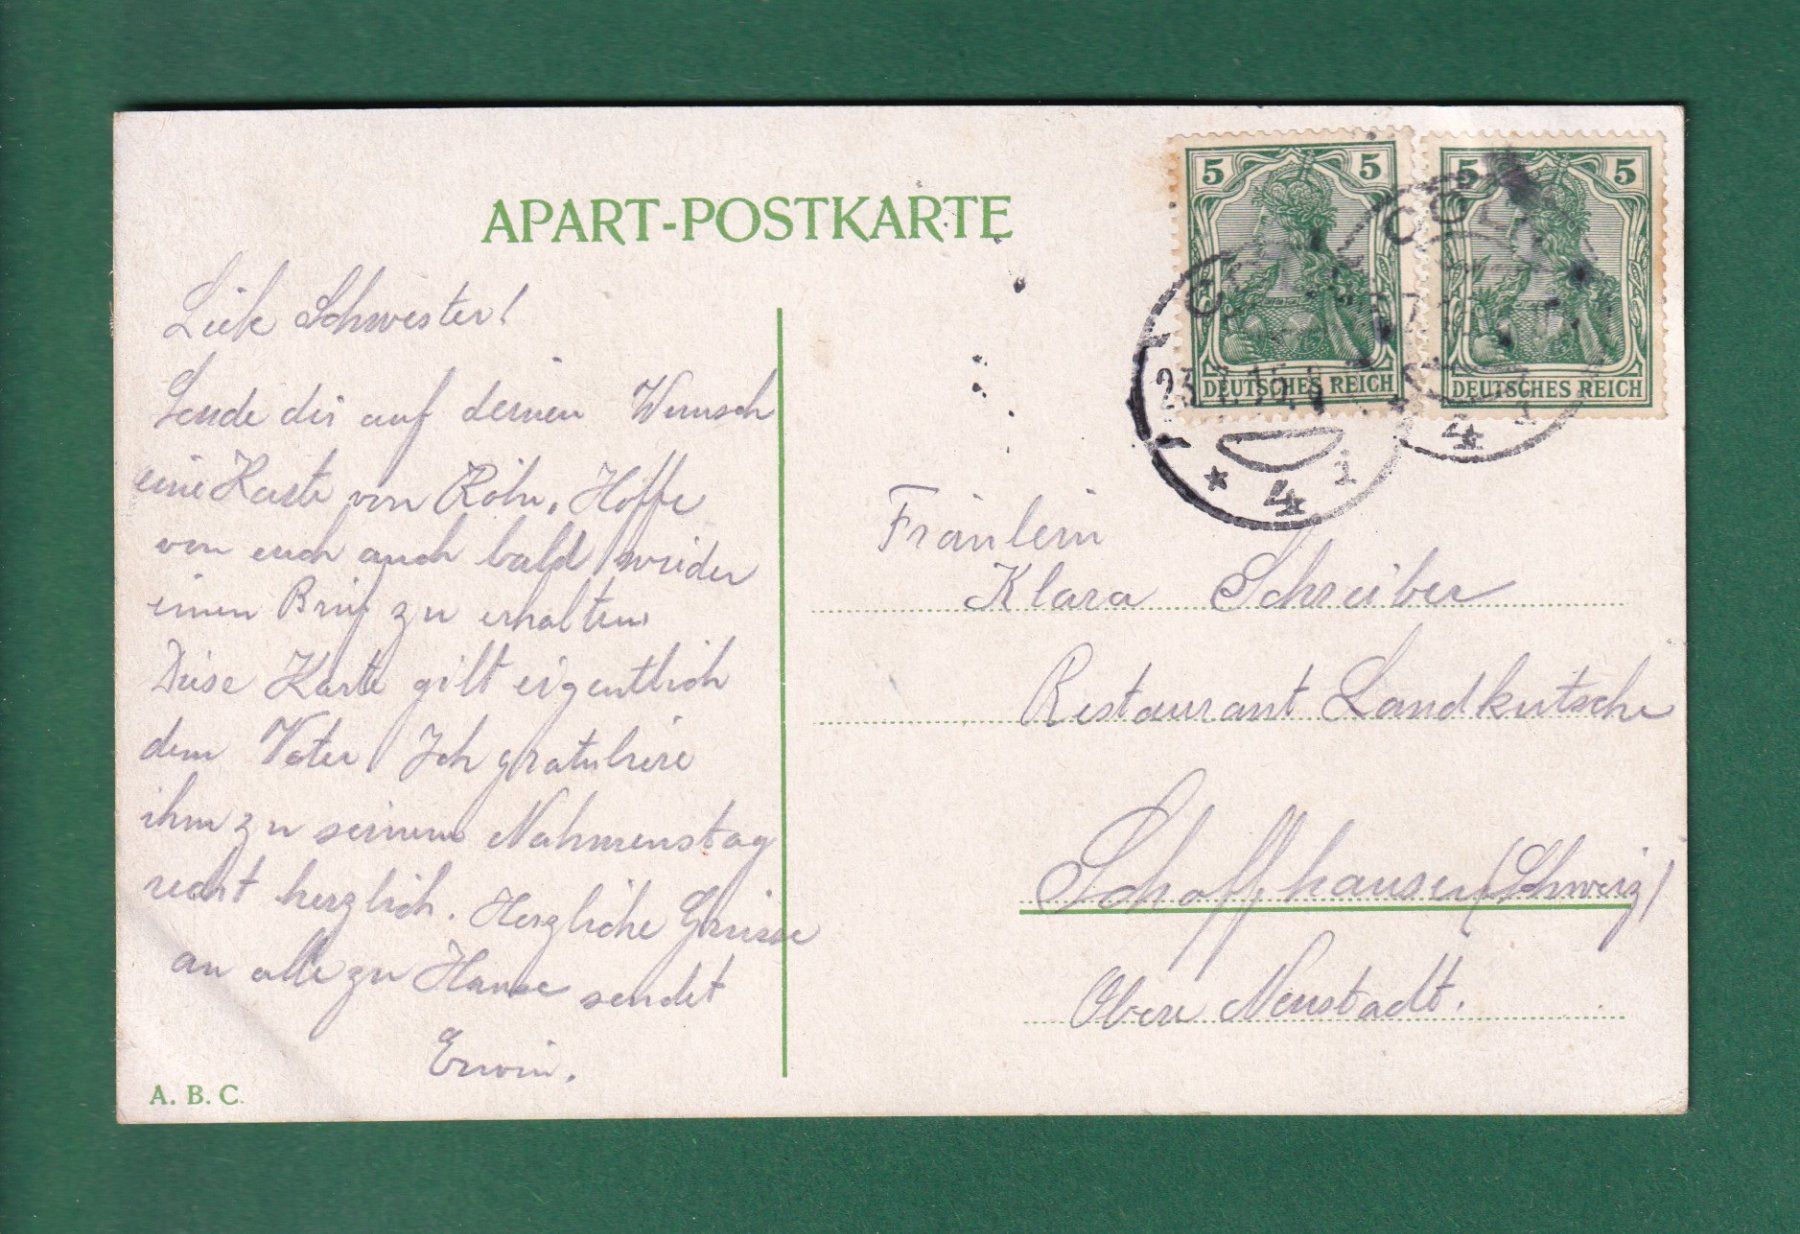 APART-POSTKARTE
5 5
DEUTSCHES REICH
5 5
DEUTSCHES REICH
23.
* 4 i
4 i
Liebe Schwester!
Sende dir auf deinen Wunsch
eine Karte von Köln. Hoffe
von euch auch bald wieder
einen Brief zu erhalten.
Diese Karte gilt eigentlich
dem Vater Ich gratuliere
ihm zu seinem Nahmenstag
recht herzlich. Herzliche Grüsse
an alle zu Hause sendet
Erwin.
A. B. C.
Fräulein
Klara Schreiber
Restaurant Landkutsche
Schaffhausen (Schweiz)
Obere Neustadt.